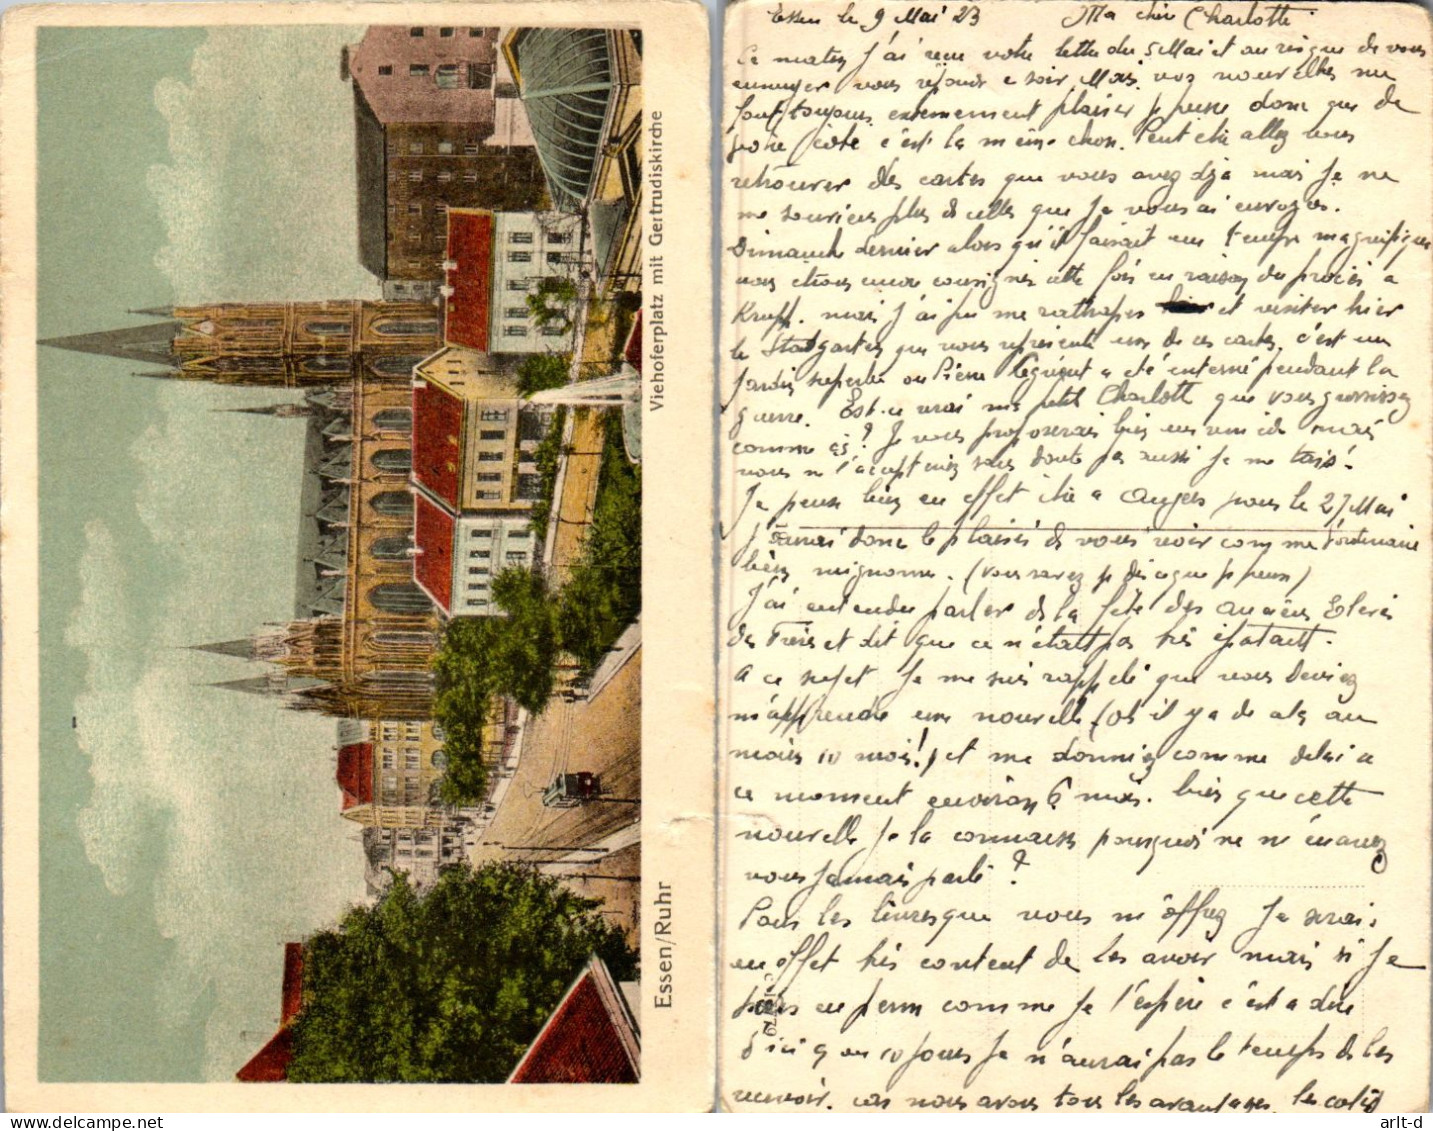 Essen/Ruhr Viehoferplatz mit Gertrudiskirche
Essen le 9 Mai 23 Ma chère Charlotte
Ce matin j'ai reçu votre lettre du 5 Mai et au risque de vous
ennuyer vous réponds ce soir. Mais vos nouvelles me
font toujours extremement plaisir je pense donc que de
votre côté c'est la même chose. Peut être allez vous
retrouver des cartes que vous avez déjà mais je ne
me souviens plus de celles que je vous ai envoyés.
Dimanche dernier alors qu'il faisait un temps magnifique
nous étions encore consignés cette fois en raison du procès a
Krupp. mais j'ai pu me rattraper et visiter hier
le Stadgarten que vous représente une de ces cartes, c'est un
jardin superbe ou Pierre a été interné pendant la
guerre. Est-ce vrai ma petite Charlotte que vous grossissez
comme ça? Je vous proposerais bien mais
vous ne l'accepteriez sans doute pas aussi je me tais!
Je pense bien en effet être a Angers pour le 27 Mai
J'aurai donc le plaisir de vous voir comme
bien mignonne. (vous savez je dis ce que je pense)
J'ai entendu parler de la fête des anciens Elèves
des Frères et dit que ce n'était pas très épatant.
A ce sujet je me suis rappelé que vous deviez
m'apprendre une nouvelle (oh il y a de ça au
moins 10 mois!) et me donniez comme délai a
ce moment environ 6 mois. bien que cette
nouvelle je la connaisse pourquoi ne m'en avez
vous jamais parlé?
Pour les livres que vous m'offrez je serais
en effet très content de les avoir mais si je
suis en perm comme je l'espère c'est a dire
d'ici 9 ou 10 jours je n'aurai pas le temps de les
recevoir. car nous avons tous les avantages, les colis
arlt-d